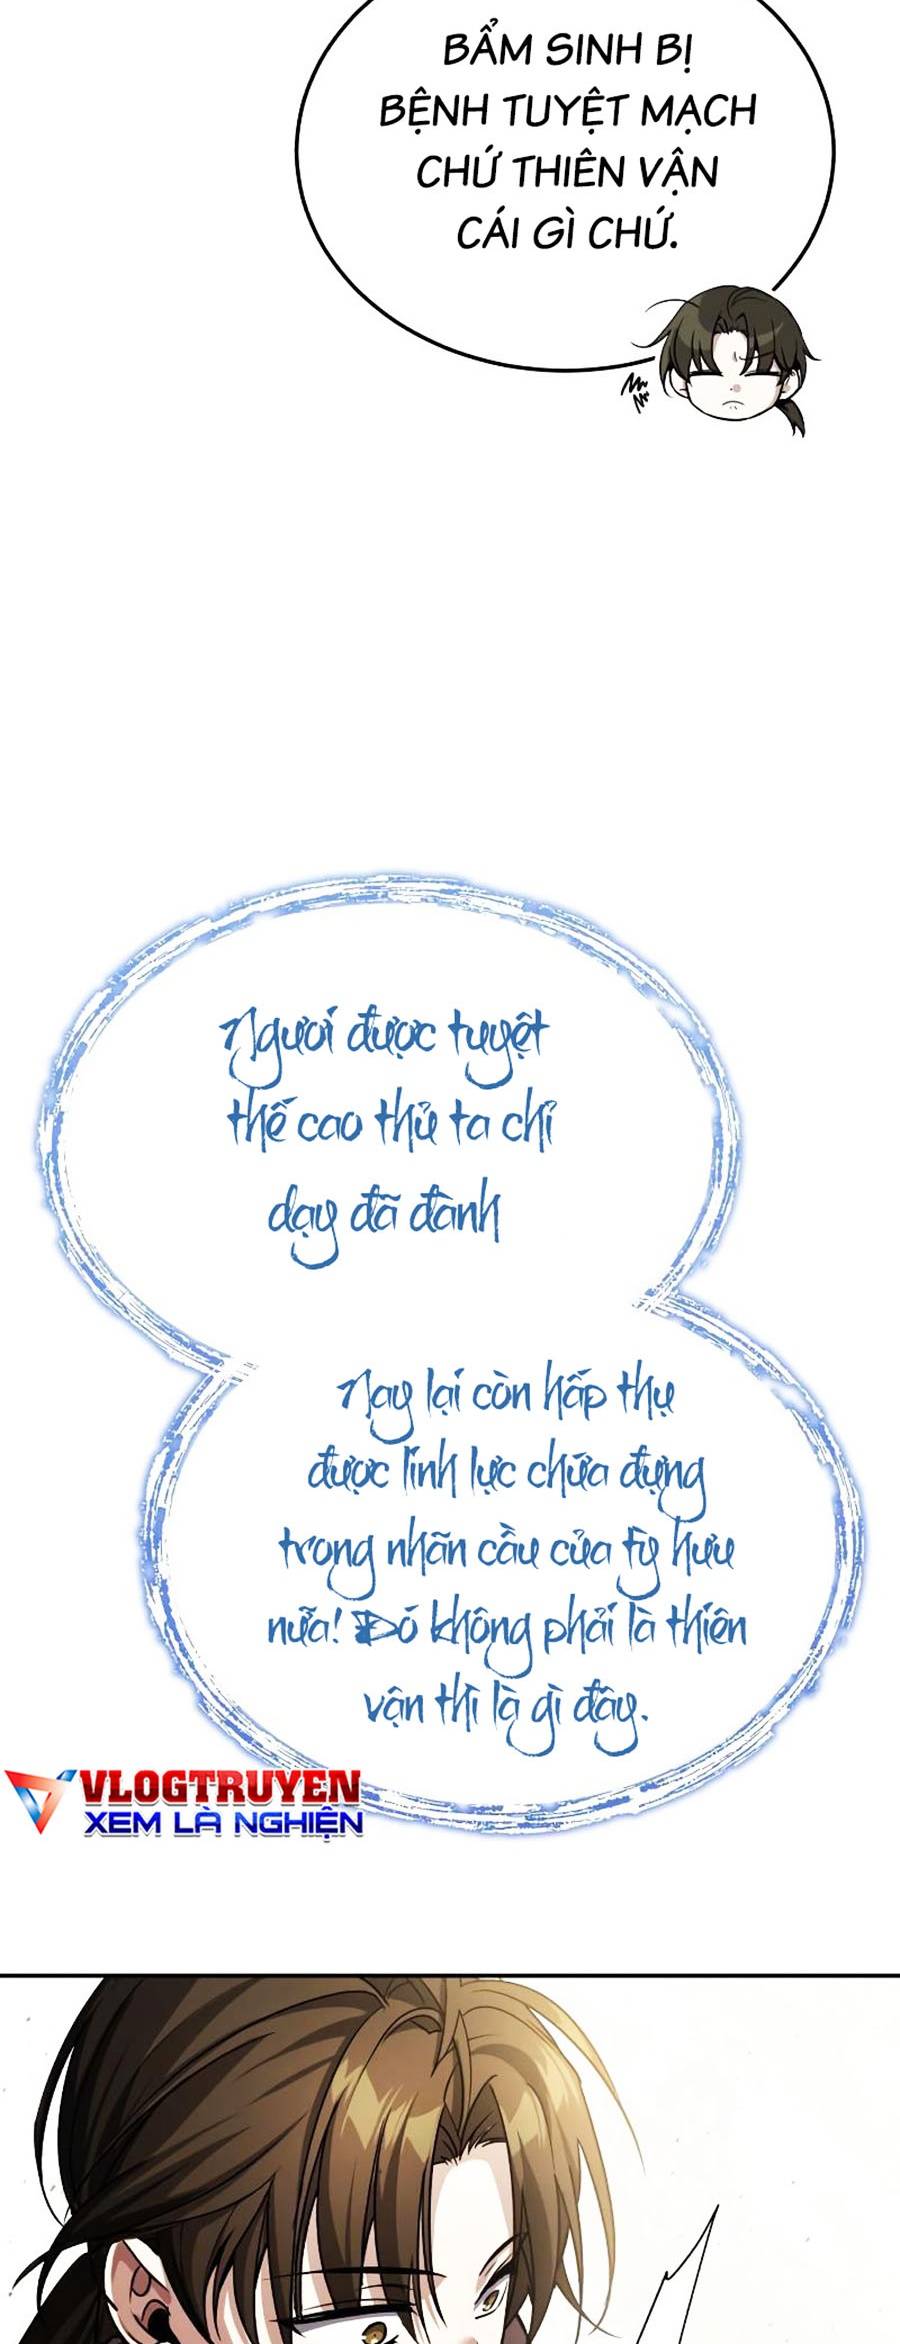 BẨM SINH BỊ
BỆNH TUYỆT MẠCH
CHỨ THIÊN VẬN
CÁI GÌ CHỨ.
Ngươi được tuyệt
thế cao thủ ta chỉ
dạy đã đành
Nay lại còn hấp thụ
được linh lực chứa đựng
trong nhãn cầu của tỳ hưu
nữa! Đó không phải là thiên
vận thì là gì đây.
VLOGTRUYEN
XEM LÀ NGHIỆN